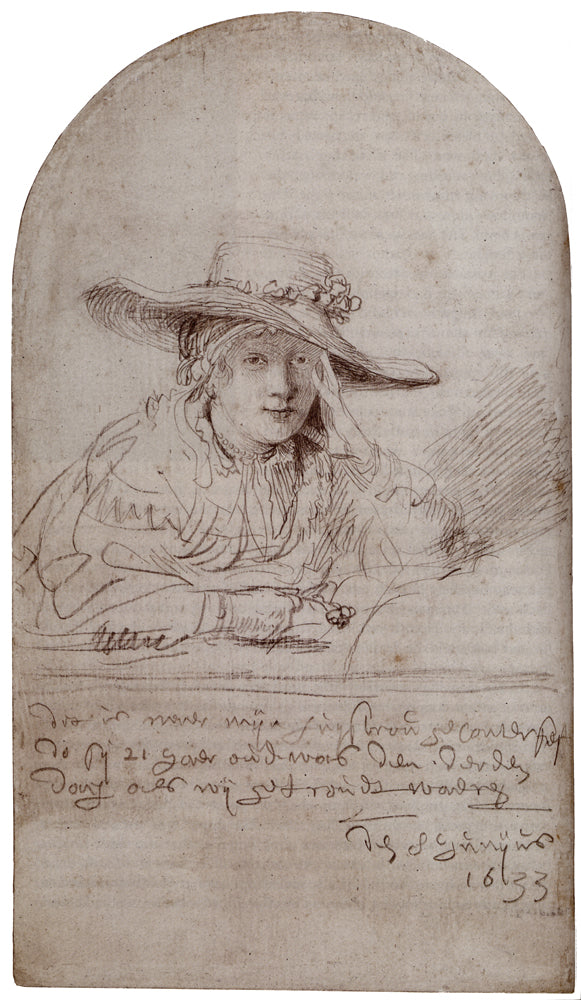 dit is naer mijn huysvrou geconterfeyt
do sij 21 jaer oud was den derden
dach als wij getroudt waeren
den 8 Junijus
1633